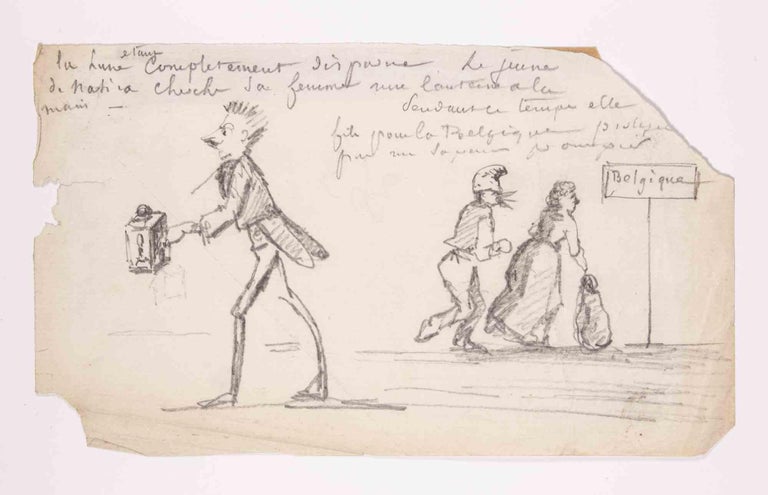 la lune etant complètement disparue Le jeune
de cherche sa femme une lanterne a la
main —
Pendant ce temps elle
file pour la Belgique
par un sapeur pompier
Belgique